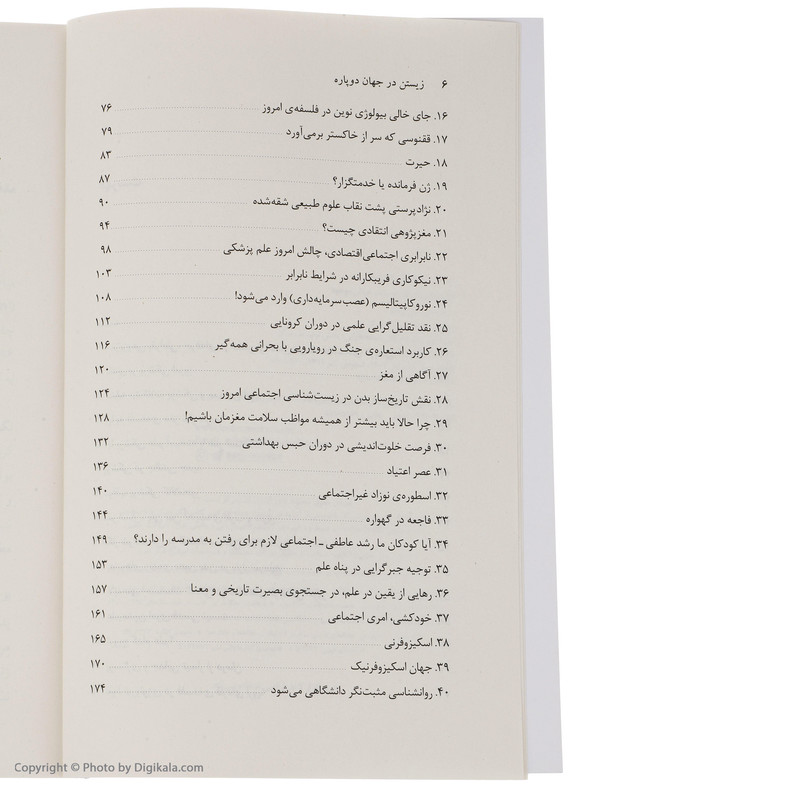 ۶ زیستن در جهان دوپاره
۱۶. جای خالی بیولوژی نوین در فلسفه‌ی امروز ۷۶
۱۷. ققنوسی که سر از خاکستر برمی‌آورد ۷۹
۱۸. حیرت ۸۳
۱۹. ژن فرمانده یا خدمتگزار؟ ۸۷
۲۰. نژادپرستی پشت نقاب علوم طبیعی شقه‌شده ۹۰
۲۱. مغزپژوهی انتقادی چیست؟ ۹۴
۲۲. نابرابری اجتماعی‌اقتصادی، چالش امروز علم پزشکی ۹۸
۲۳. نیکوکاری فریبکارانه در شرایط نابرابر ۱۰۳
۲۴. نوروکاپیتالیسم (عصب‌سرمایه‌داری) وارد می‌شود! ۱۰۸
۲۵. نقد تقلیل‌گرایی علمی در دوران کرونایی ۱۱۲
۲۶. کاربرد استعاره‌ی جنگ در رویارویی با بحرانی همه‌گیر ۱۱۶
۲۷. آگاهی از مغز ۱۲۰
۲۸. نقش تاریخ‌ساز بدن در زیست‌شناسی اجتماعی امروز ۱۲۴
۲۹. چرا حالا باید بیشتر از همیشه مواظب سلامت مغزمان باشیم! ۱۲۸
۳۰. فرصت خلوت‌اندیشی در دوران حبس بهداشتی ۱۳۲
۳۱. عصر اعتیاد ۱۳۶
۳۲. اسطوره‌ی نوزاد غیراجتماعی ۱۴۰
۳۳. فاجعه در گهواره ۱۴۴
۳۴. آیا کودکان ما رشد عاطفی ـ اجتماعی لازم برای رفتن به مدرسه را دارند؟ ۱۴۹
۳۵. توجیه جبرگرایی در پناه علم ۱۵۳
۳۶. رهایی از یقین در علم، در جستجوی بصیرت تاریخی و معنا ۱۵۷
۳۷. خودکشی، امری اجتماعی ۱۶۱
۳۸. اسکیزوفرنی ۱۶۵
۳۹. جهان اسکیزوفرنیک ۱۷۰
۴۰. روانشناسی مثبت‌نگر دانشگاهی می‌شود ۱۷۴
Copyright © Photo by Digikala.com